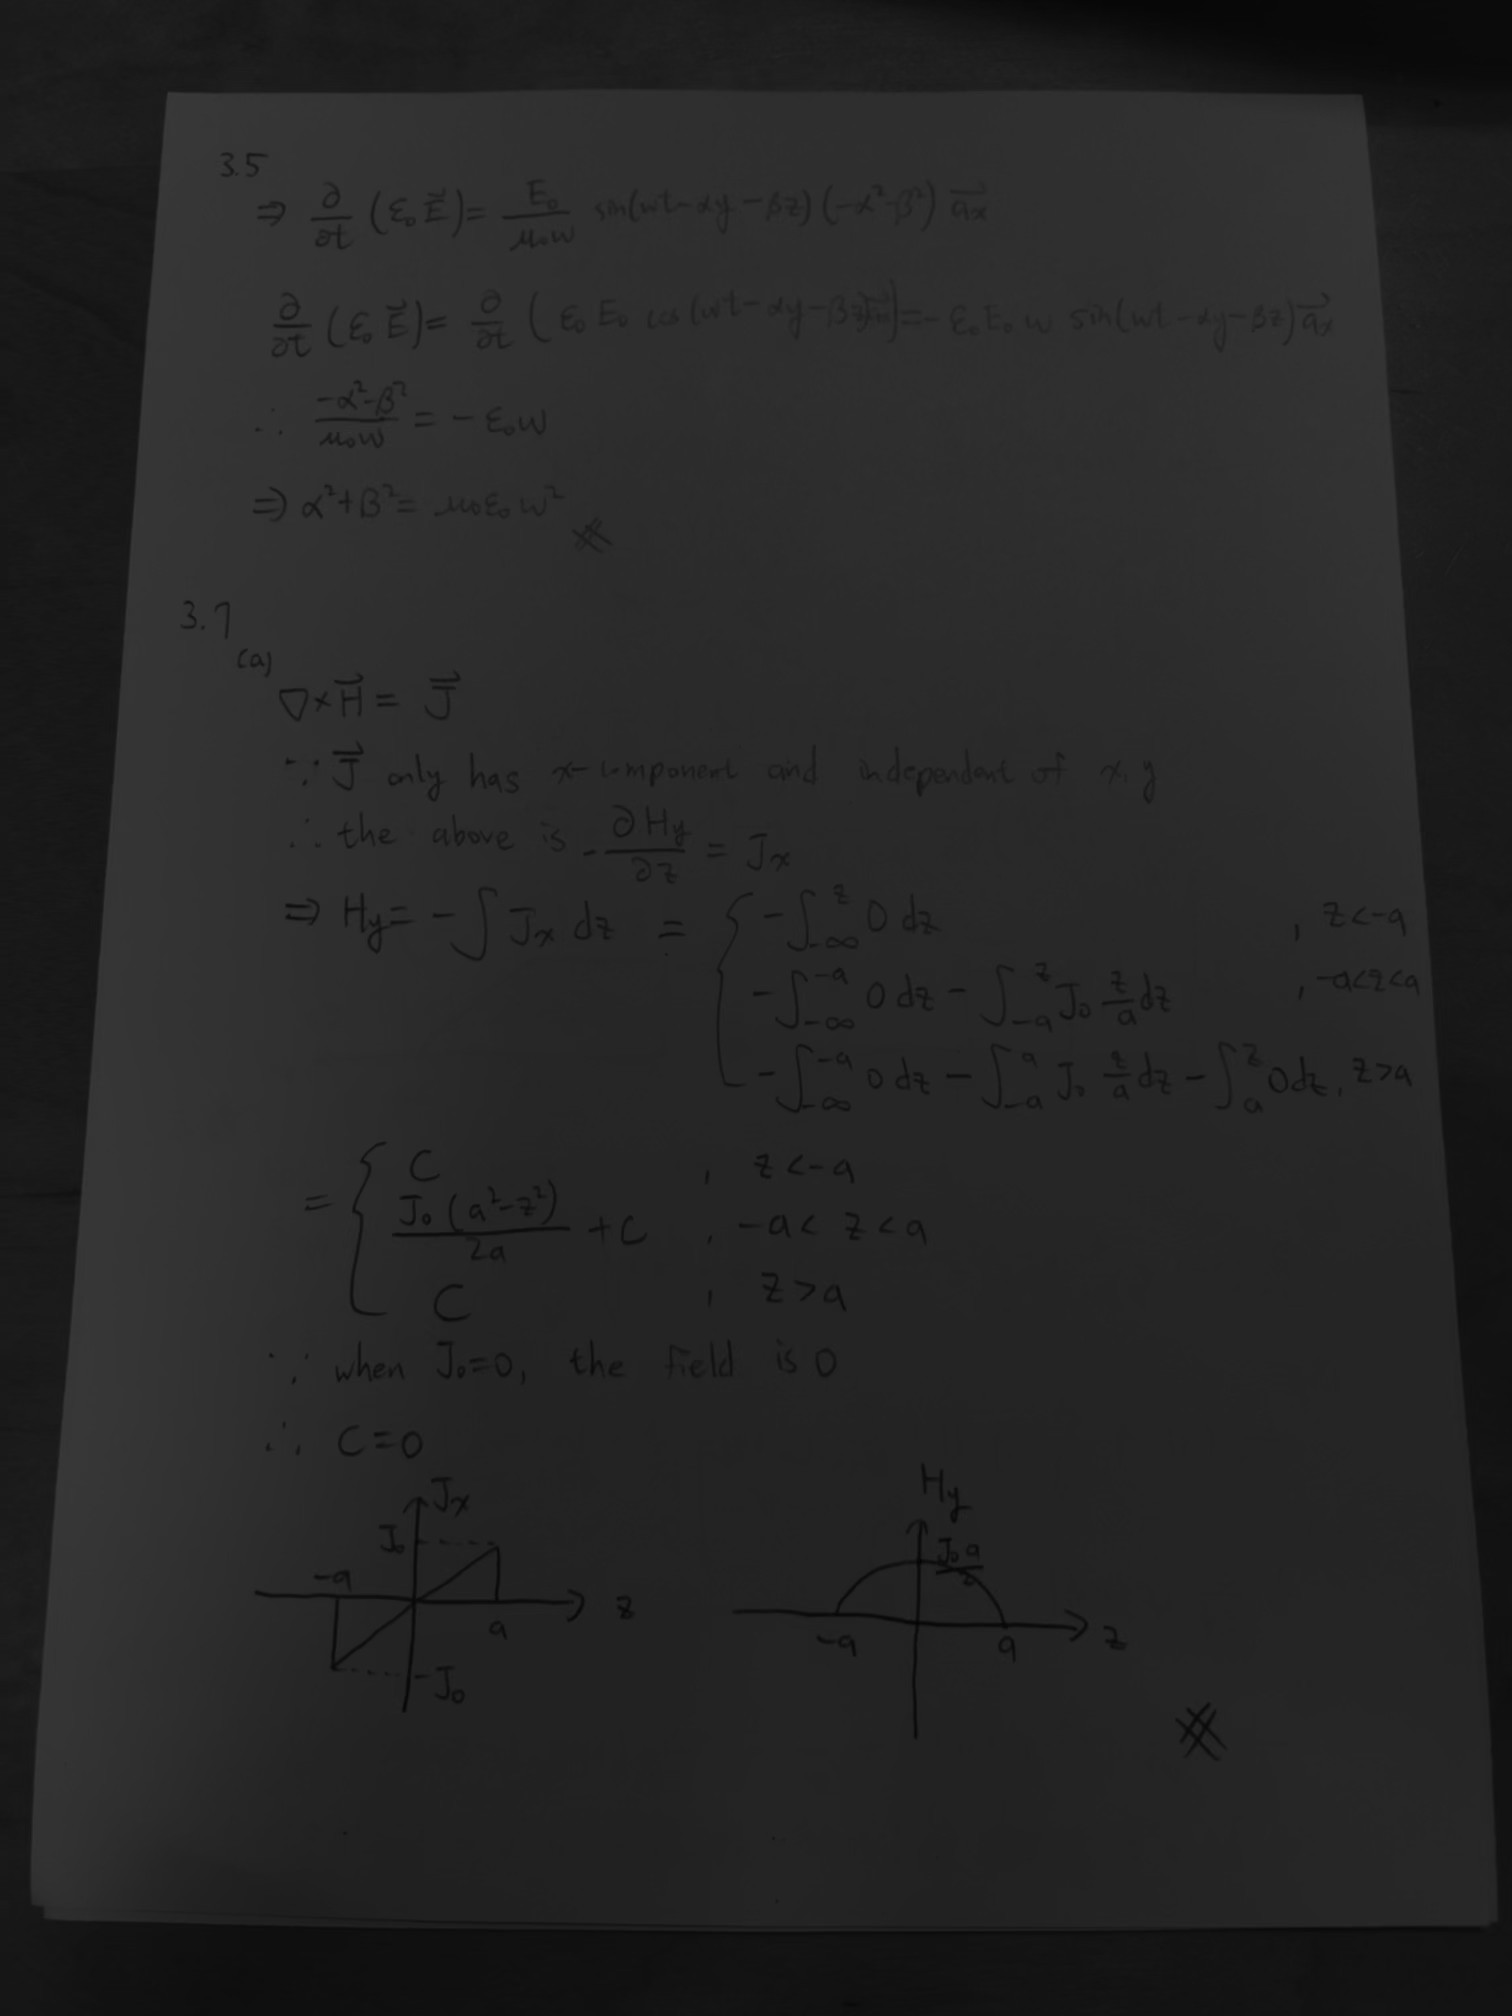 3.5
⇒ ∂/∂t (ε₀E⃗) = E₀/μ₀w sin(wt-αy-βz) (-α²-β²) a⃗x
∂/∂t (ε₀E⃗) = ∂/∂t (ε₀E₀ cos(wt-αy-βz)a⃗x) = -ε₀E₀w sin(wt-αy-βz) a⃗x
∴ (-α²-β²)/μ₀w = -ε₀w
⇒ α²+β² = μ₀ε₀w²
3.7
(a)
∇×H⃗ = J⃗
∵ J⃗ only has x-component and independent of x, y
∴ the above is -∂Hy/∂z = Jx
⇒ Hy = -∫Jx dz = { -∫_{-∞}^{z} 0 dz , z<-a
-∫_{-∞}^{-a} 0 dz - ∫_{-a}^{z} J₀ z/a dz , -a<z<a
-∫_{-∞}^{-a} 0 dz - ∫_{-a}^{a} J₀ z/a dz - ∫_{a}^{z} 0 dz, z>a
= { C , z<-a
J₀(a²-z²)/2a + C , -a< z <a
C , z>a
∵ when J₀=0, the field is 0
∴ C=0
Jx
J₀
-a
z
a
-J₀
Hy
J₀a/2
-a
a
z